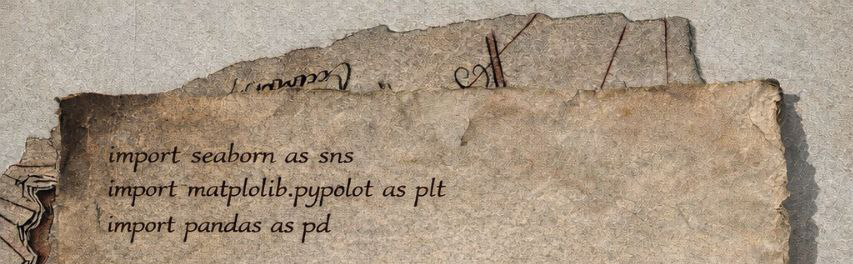 import seaborn as sns
import matplolib.pypolot as plt
import pandas as pd